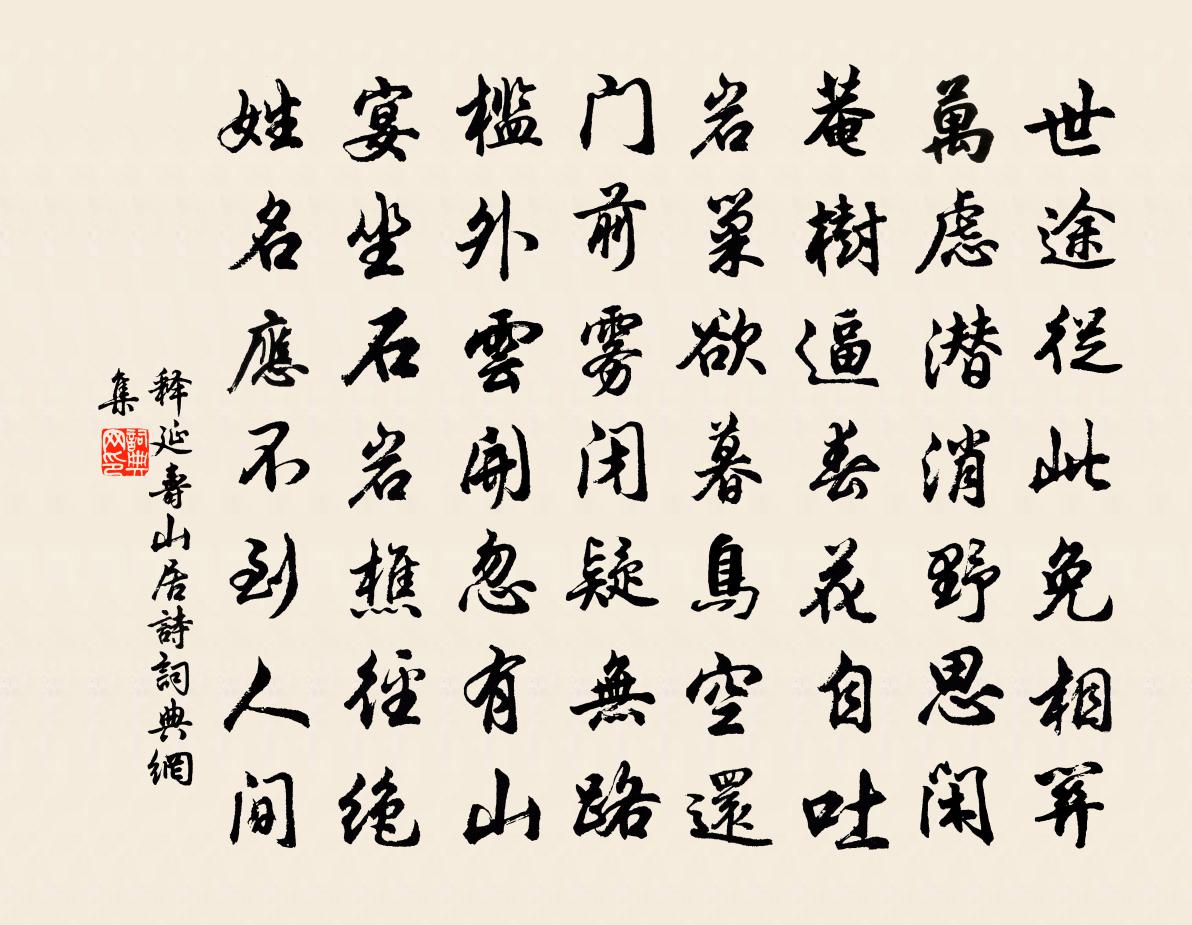 世途從此免相關
萬慮潜消野思閑
菴樹逼春花自吐
岩巢欲暮鳥空還
门前雾闭疑無路
檻外雲開忽有山
宴坐石岩樵徑绝
姓名應不到人間
释延壽山居詩詞典網
集
詞典
网印